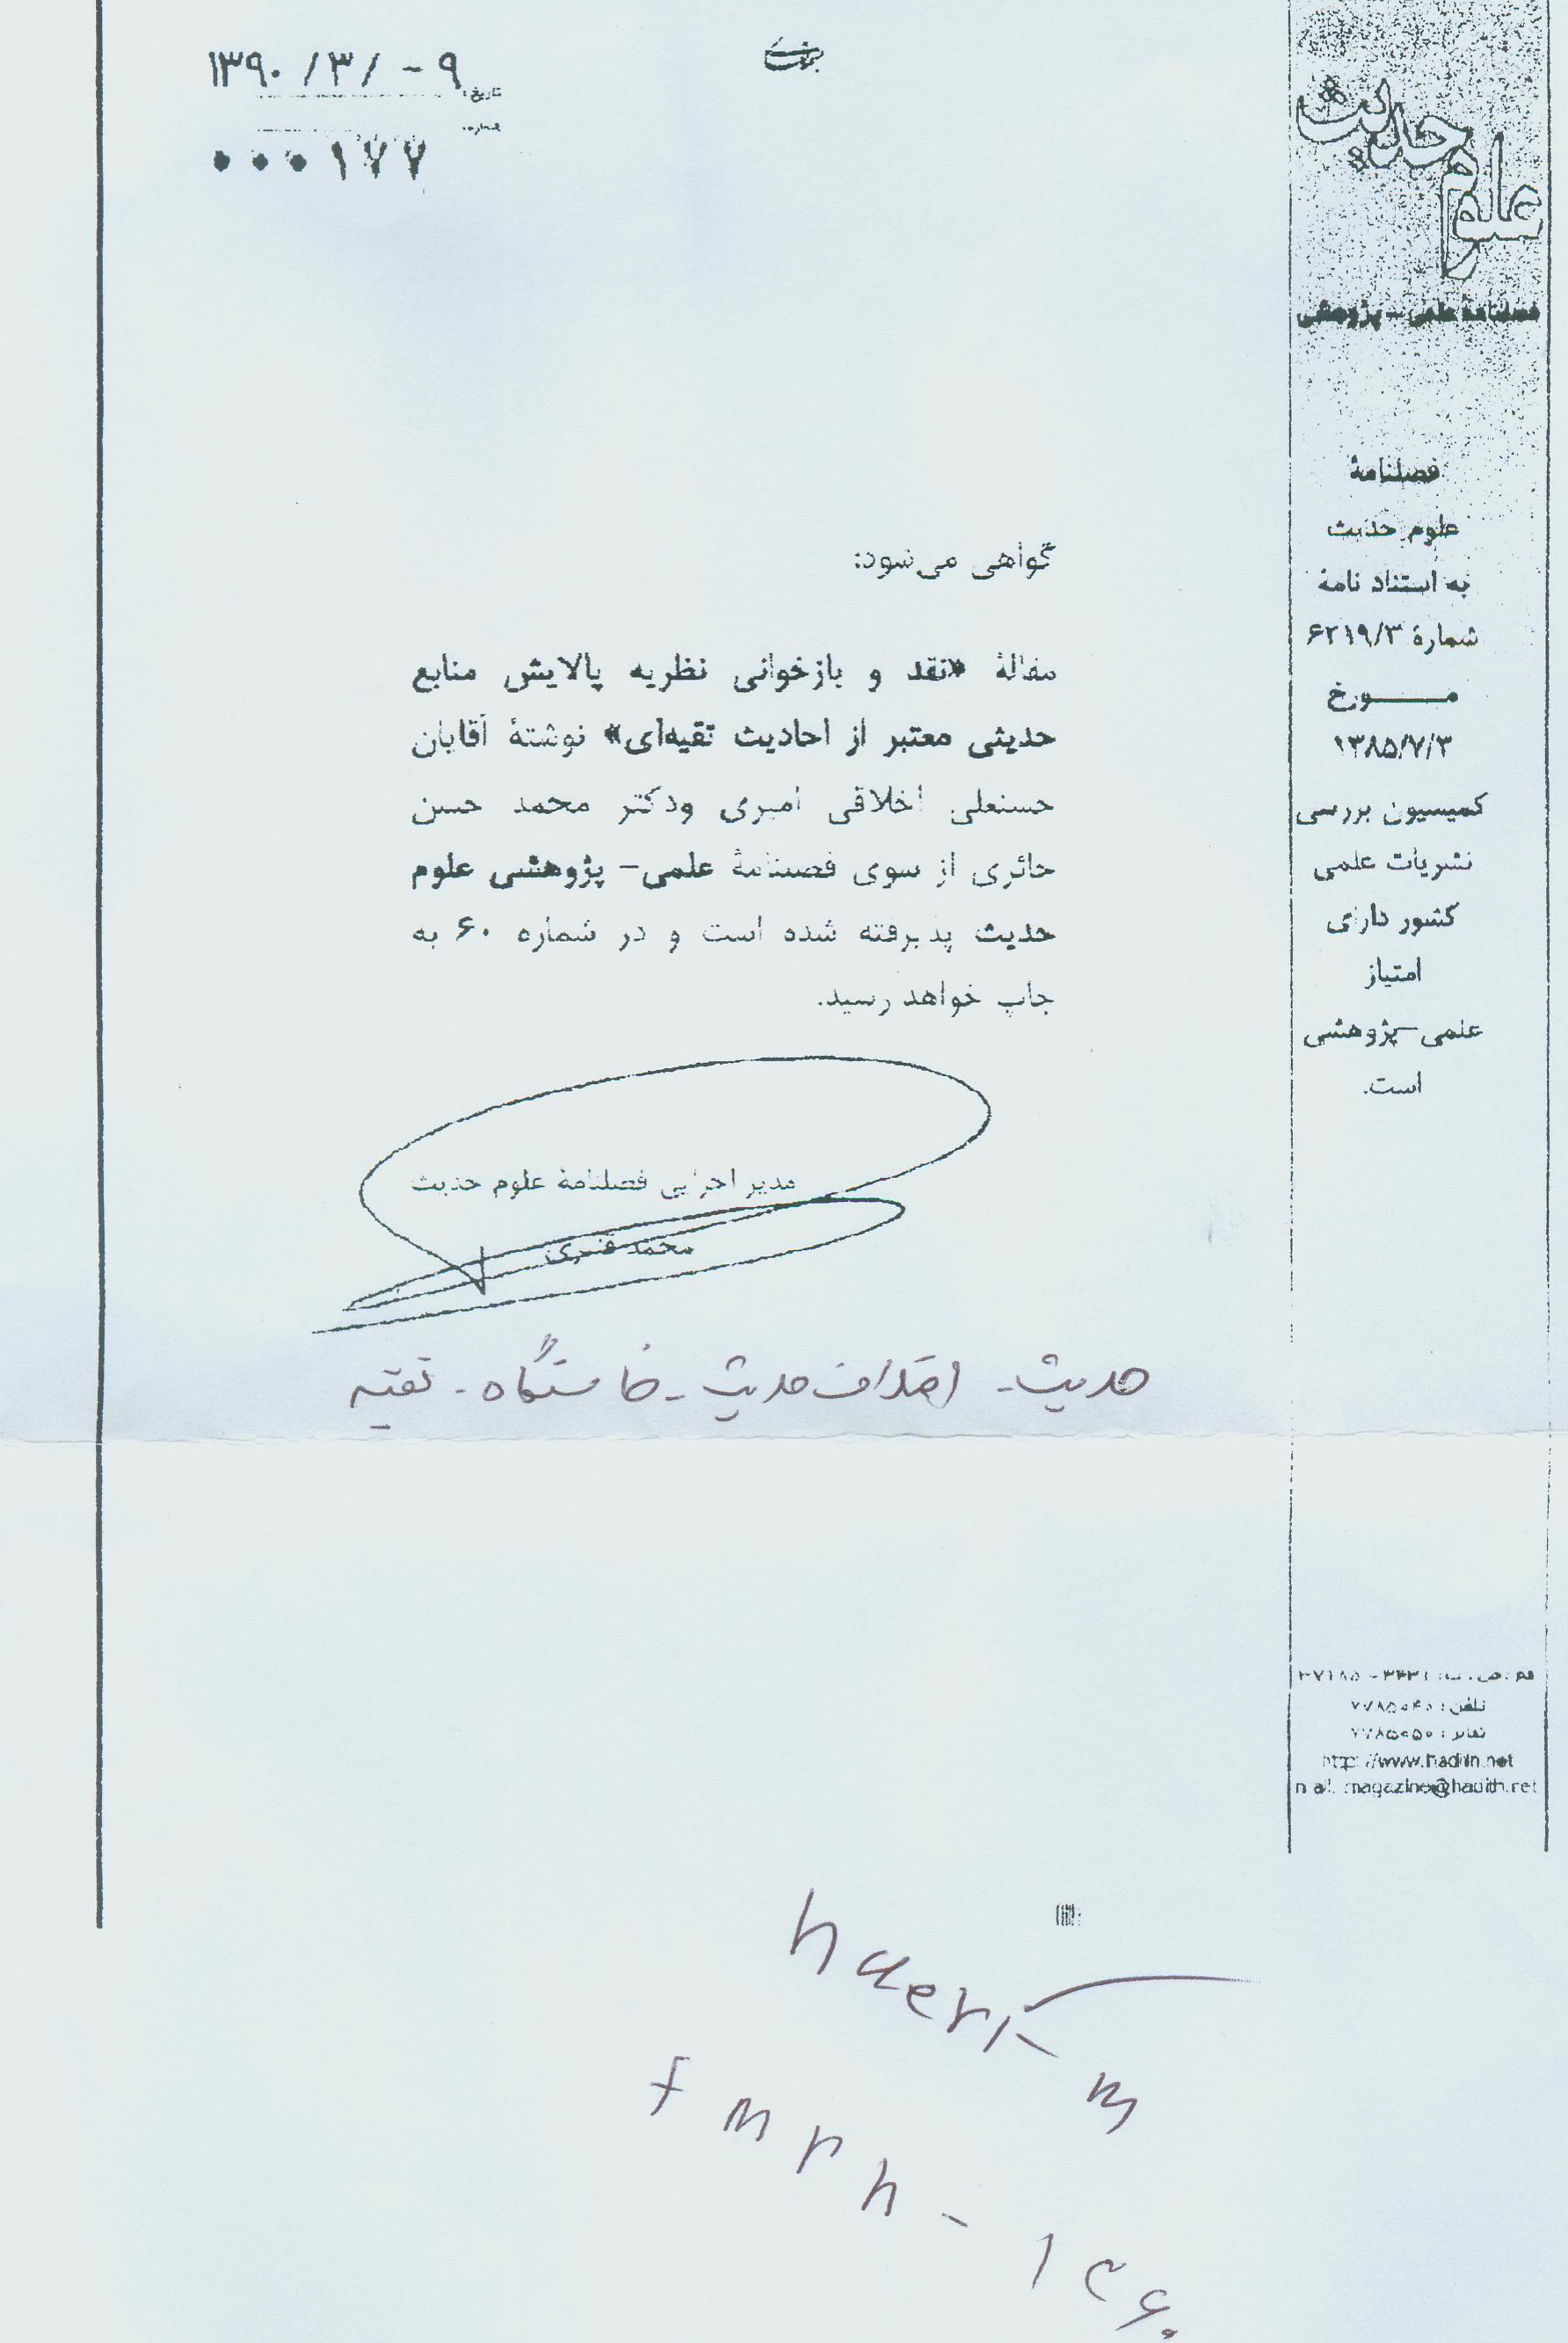 ۱۳۹۰ /۳/ -۹
تاریخ:
شماره:
۰۰۰۱۷۷
علوم حدیث
فصلنامهٔ علمی - پژوهشی
فصلنامهٔ
علوم حدیث
به استناد نامهٔ
شمارهٔ ۶۲۱۹/۳
مـــــورخ
۱۳۸۵/۷/۳
کمیسیون بررسی
نشریات علمی
کشور دارای
امتیاز
علمی-پژوهشی
است.
گواهی می‌شود:
مقالهٔ «نقد و بازخوانی نظریه پالایش منابع
حدیثی معتبر از احادیث تقیه‌ای» نوشتهٔ آقایان
حسنعلی اخلاقی امیری ودکتر محمد حسن
حائری از سوی فصلنامهٔ علمی- پژوهشی علوم
حدیث پذیرفته شده است و در شماره ۶۰ به
چاپ خواهد رسید.
مدیر اجرایی فصلنامهٔ علوم حدیث
محمد قنبری
حدیث - اختلاف حدیث - خاستگاه - تقیه
تلفن: ۷۷۸۵۰۴۰
نمابر: ۷۷۸۵۰۵۰
http://www.hadith.net
magazine@hadith.net
haeri-m